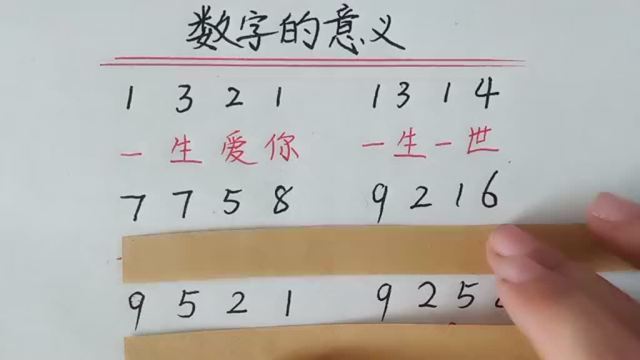 数字的意义
1 3 2 1 1 3 1 4
一生爱你 一生一世
7 7 5 8 9 2 1 6
9 5 2 1 9 2 5